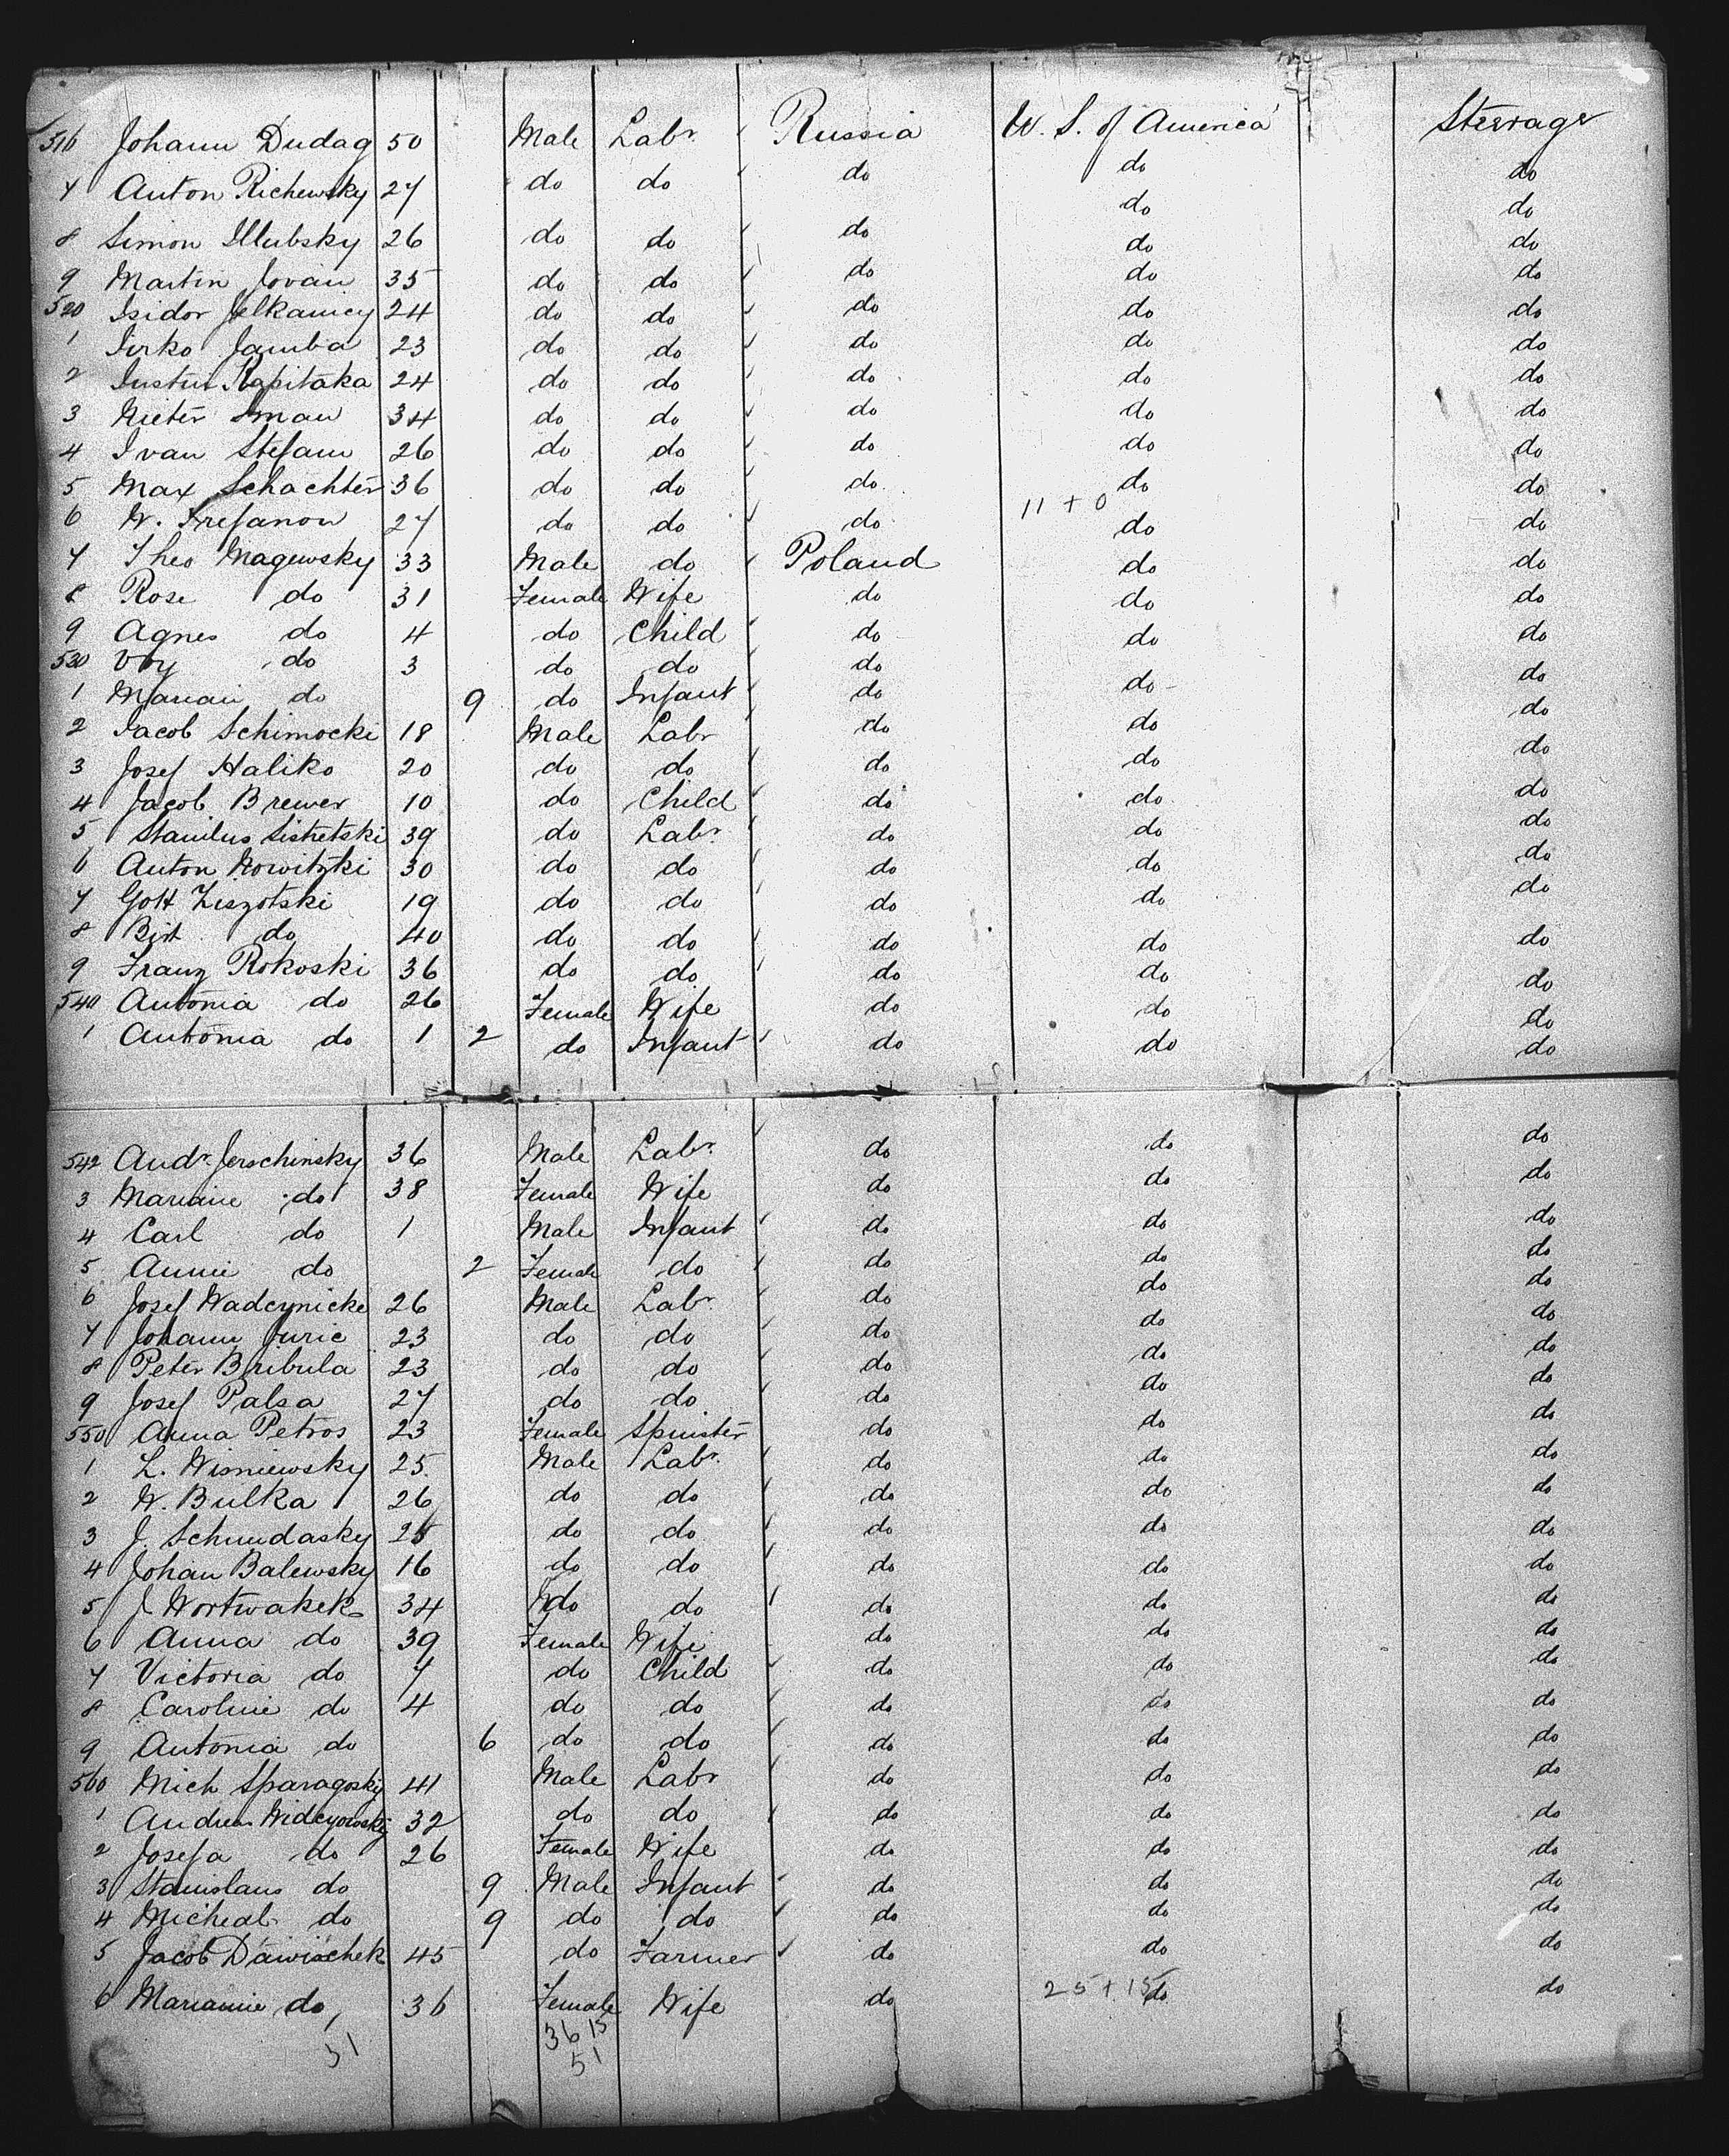 516 Johann Dudag 50 Male Labr. Russia U. S. of America Steerage
7 Anton Richewsky 27 do do do do do
do do
8 Simon Illubsky 26 do do do do do
9 Martin Jovan 35 do do do do do
520 Isidor Jelkanicy 24 do do do do do
1 Jirko Jamba 23 do do do do do
2 Justin Kapitaka 24 do do do do do
3 Smau 34 do do do do do
4 Ivan Stefani 26 do do do do do
5 Max Schachter 36 do do do do do
6 W. Trefanow 27 do do do 11 + 0 do do
7 Theo Magewsky 33 Male do Poland do do
8 Rose do 31 Female Wife do do do
9 Agnes do 4 do Child do do do
530 do 3 do do do do do
1 Marian do 9 do Infant do do do
2 Jacob Schimocki 18 Male Labr do do do
3 Josef Haliko 20 do do do do do
4 Jacob Brewer 10 do Child do do do
5 Stanilus Sistretski 39 do Labr. do do do
6 Anton Nowitzki 30 do do do do do
7 Gott Ziszotski 19 do do do do do
8 Birt do 40 do do do do do
9 Franz Rokoski 36 do do do do do
540 Antonia do 26 Female Wife do do do
1 Antonia do 1 2 do Infant do do do
542 Andr. Jerschinsky 36 Male Labr. do do do
3 Mariane do 38 Female Wife do do do
4 Carl do 1 Male Infant do do do
5 Annie do 2 Female do do do do
6 Josef Wadcynicke 26 Male Labr. do do do
7 Johann Juric 23 do do do do do
8 Peter Bribula 23 do do do do do
9 Josef Palsa 27 do do do do do
550 Anna Petros 23 Female Spinster do do do
1 L. Wisniewsky 25 Male Labr. do do do
2 W. Bulka 26 do do do do do
3 J. Schmudasky 25 do do do do do
4 Johan Balewsky 16 do do do do do
5 J Wortwakek 34 do do do do do
6 Anna do 39 Female Wife do do do
7 Victoria do 7 do Child do do do
8 Caroline do 4 do do do do do
9 Antonia do 6 do do do do do
560 Mich Sparagosky 41 Male Labr do do do
1 Andreas Widcyowsky 32 do do do do do
2 Josefa do 26 Female Wife do do do
3 Stanislaus do 9 Male Infant do do do
4 Micheal do 9 do do do do do
5 Jacob Dawischek 45 do Farmer do do do
6 Marianne do 36 Female Wife do 25 + 15 do do
51 36 15
51